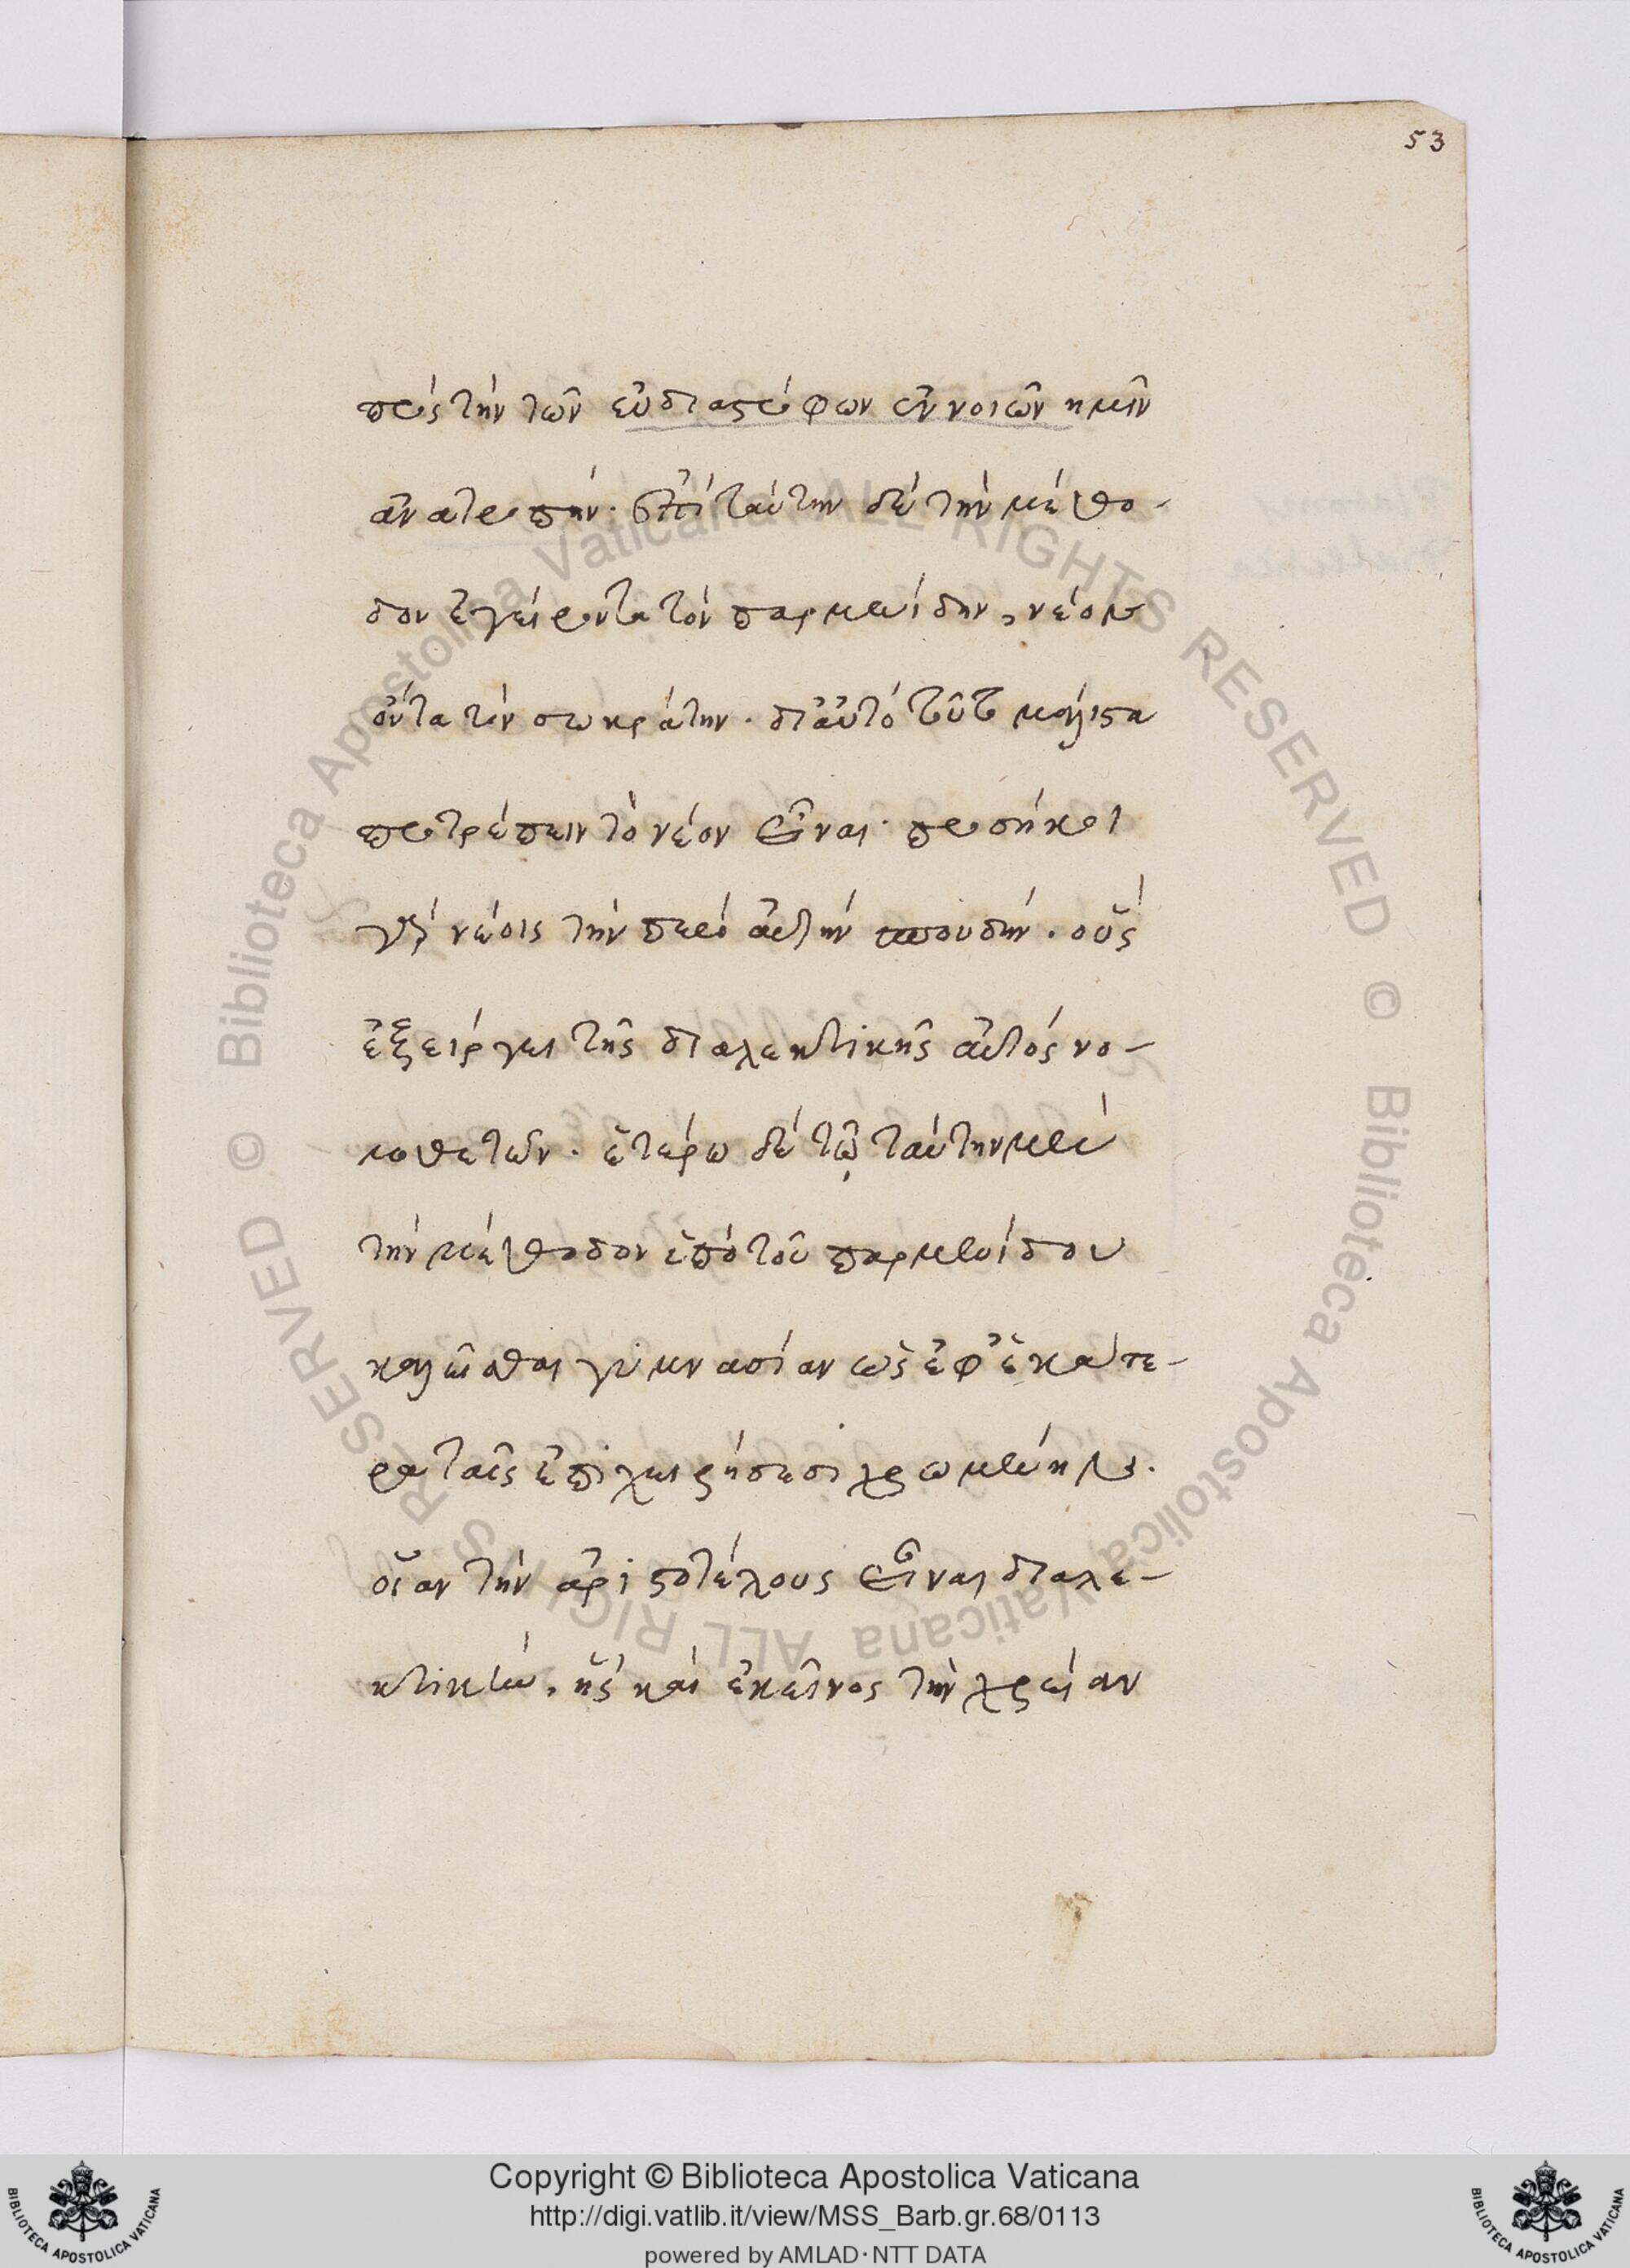 53
πρός τήν τῶν εὐδιαστρόφων ἐννοιῶν ημῖν
ἀνατροπήν. ἐπί ταύτην δέ τήν μέθο-
δον ἐγείροντα τόν παρμενίδην, νέον
ὄντα τόν σωκράτην. δι' αὐτό τοῦτο μάλιστα
προτρέπειν τὸ νέον εἶναι. προσήκει
γάρ νέοις τήν περί αὐτήν σπουδήν. οὕς
ἐξείργει τῆς διαλεκτικῆς αὐτός νο-
μοθετῶν. ἑτέρω δέ τῷ ταύτην μέν
τήν μέθοδον ὑπό τοῦ παρμενίδου
καλεῖσθαι γυμνασίαν ὡς ἐφ' ἑκάτε-
ρα ταῖς ἐπιχειρήσεσι χρωμένην.
οἵαν τήν ἀριστοτέλους εἶναι διαλε-
κτικήν, ἧς καί ἐκεῖνος τὴν χρείαν
Biblioteca Apostolica Vaticana ALL RIGHTS RESERVED ©
Biblioteca Apostolica Vaticana ALL RIGHTS RESERVED ©
Copyright © Biblioteca Apostolica Vaticana
http://digi.vatlib.it/view/MSS_Barb.gr.68/0113
powered by AMLAD·NTT DATA
BIBLIOTECA APOSTOLICA VATICANA
BIBLIOTECA APOSTOLICA VATICANA